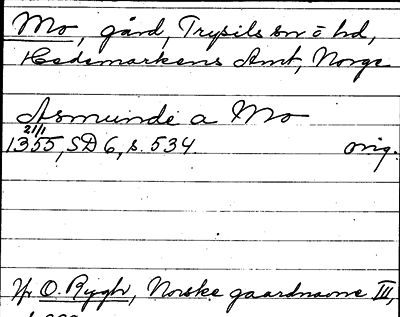 Mo, gård, Trysils sn o hd,
Hedemarkens Amt, Norge
Asmunde a Mo
21/1
1355, SD 6, s. 534 orig.
Jfr O. Rygh, Norske gaardnavne III,